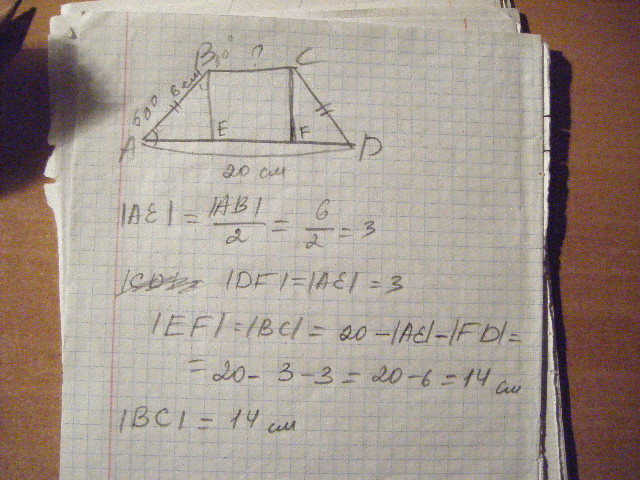 B 30° ? C
600 6 см
A E F D
20 см
|AE| = |AB|/2 = 6/2 = 3
|DF| = |AE| = 3
|EF| = |BC| = 20 - |AE| - |FD| =
= 20 - 3 - 3 = 20 - 6 = 14 см
|BC| = 14 см